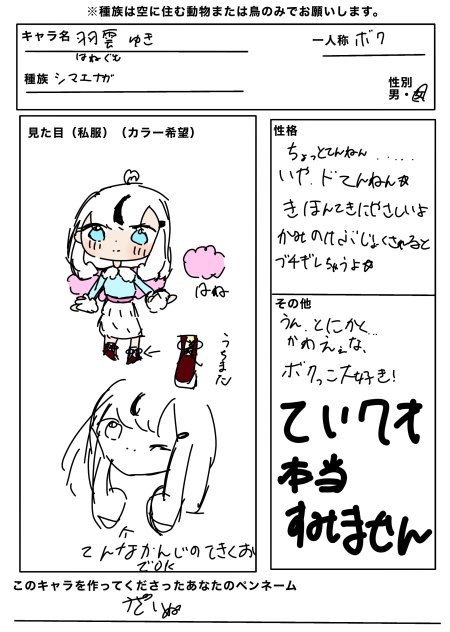 ※種族は空に住む動物または鳥のみでお願いします。
キャラ名 羽雲 ゆき
はねぐも
一人称 ボク
種族 シマエナガ
性別
男・女
見た目（私服）（カラー希望）
はね
うちまた
てんなかんじのてきとお
でOK
性格
ちょっとてんねん.....
いや、ドてんねん☆
きほんてきにやさしいよ
かみのけぶじょくされると
ブチギレちゃうよ☆
その他
うん、とにかく...
かわえぇな、
ボクっこ大好き!
ていクオ
本当
すみません
このキャラを作ってくださったあなたのペンネーム